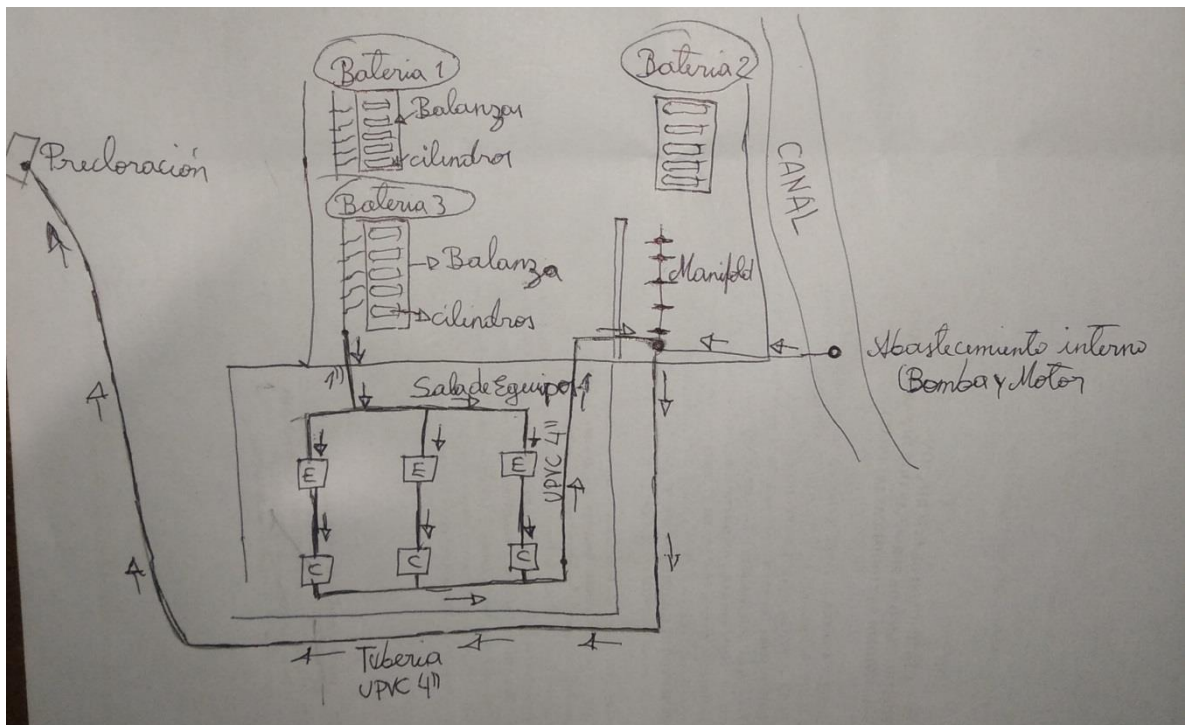 Bateria 1
Balanzas
cilindros
Bateria 2
CANAL
Precloración
Bateria 3
Balanza
cilindros
Manifold
Abastecimiento interno
(Bomba y Motor
1"
Sala de Equipos
UPVC 4"
E
E
E
C
C
C
Tuberia
UPVC 4"